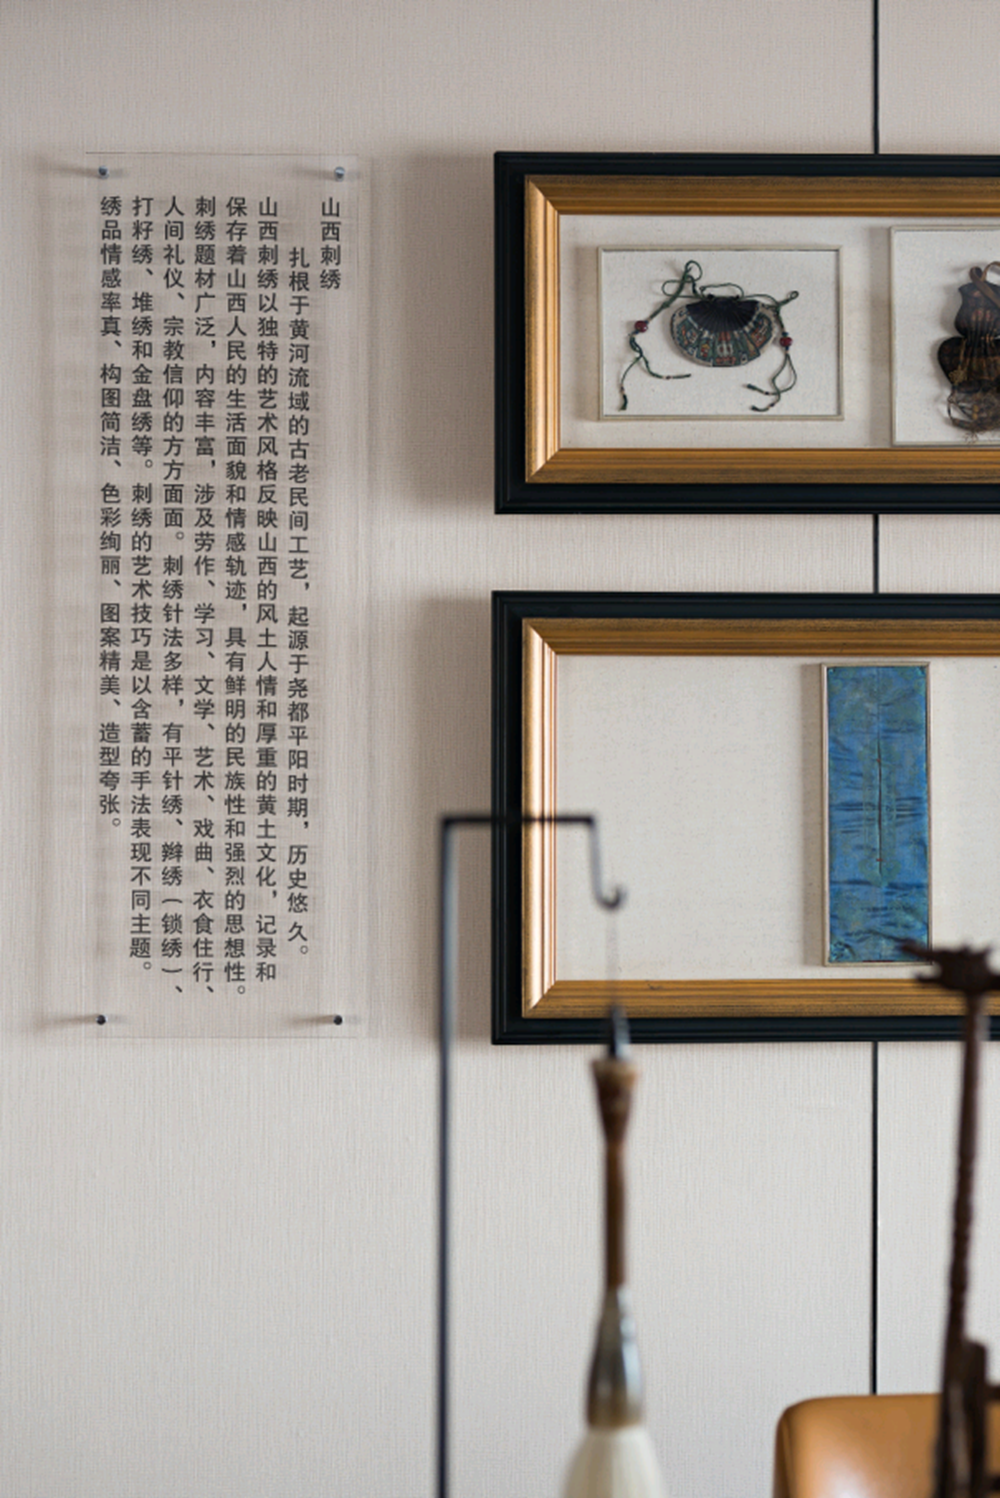 山西刺绣
扎根于黄河流域的古老民间工艺，起源于尧都平阳时期，历史悠久。
山西刺绣以独特的艺术风格反映山西的风土人情和厚重的黄土文化，记录和
保存着山西人民的生活面貌和情感轨迹，具有鲜明的民族性和强烈的思想性。
刺绣题材广泛，内容丰富，涉及劳作、学习、文学、艺术、戏曲、衣食住行、
人间礼仪、宗教信仰的方方面面。刺绣针法多样，有平针绣、辫绣（锁绣）、
打籽绣、堆绣和金盘绣等。刺绣的艺术技巧是以含蓄的手法表现不同主题。
绣品情感率真、构图简洁、色彩绚丽、图案精美、造型夸张。